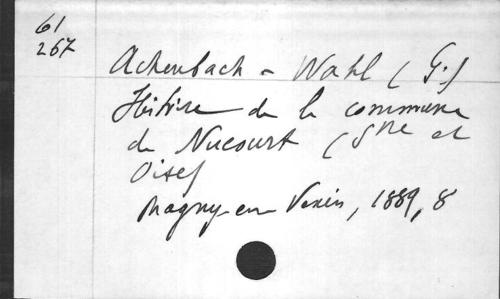 61
267
Achenbach - Wahl (G.)
Histoire de la commune
de Nucourt (Sne et
Oise)
Magny-en Vexin, 1889, 8